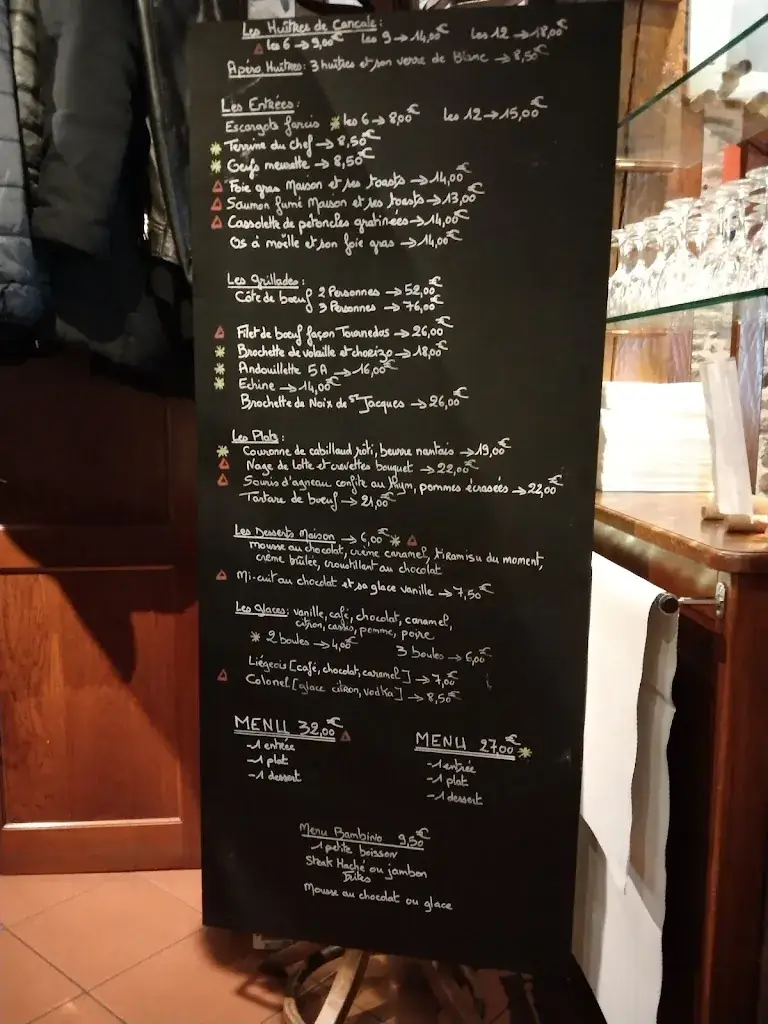 Les Huîtres de Cancale:
△ les 6 → 9,00€ les 9 → 14,00€ les 12 → 18,00€
Apéro Huîtres: 3 huîtres et son verre de Blanc → 8,50€
Les Entrées:
Escargots farcis * les 6 → 8,00€ les 12 → 15,00€
* Terrine du chef → 8,50€
* Oeufs meurette → 8,50€
△ Foie gras Maison et ses toasts → 14,00€
△ Saumon fumé Maison et ses toasts → 13,00€
△ Cassolette de pétoncles gratinées → 14,00€
Os à moëlle et son foie gras → 14,00€
Les Grillades:
Côte de boeuf 2 Personnes → 52,00€
3 Personnes → 76,00€
△ Filet de boeuf façon Tournedos → 26,00€
* Brochette de volaille et chorizo → 18,00€
* Andouillette 5A → 16,00€
* Echine → 14,00€
Brochette de Noix de St Jacques → 26,00€
Les Plats:
* Couronne de cabillaud rôti, beurre nantais → 19,00€
△ Nage de Lotte et crevettes bouquet → 22,00€
△ Souris d'agneau confite au thym, pommes écrasées → 22,00€
Tartare de boeuf → 21,00€
Les Desserts Maison → 6,00€ * △
Mousse au chocolat, crème caramel, tiramisu du moment,
crème brûlée, croustillant au chocolat
△ Mi-cuit au chocolat et sa glace vanille → 7,50€
Les Glaces: vanille, café, chocolat, caramel,
citron, cassis, pomme, poire
* 2 boules → 4,00€ 3 boules → 6,00€
Liégeois [café, chocolat, caramel] → 7,00€
△ Colonel [glace citron, vodka] → 8,50€
MENU 32,00€ △
-1 entrée
-1 plat
-1 dessert
MENU 27,00€ *
-1 entrée
-1 plat
-1 dessert
Menu Bambino 9,50€
1 petite boisson
Steak Haché ou jambon
Frites
Mousse au chocolat ou glace